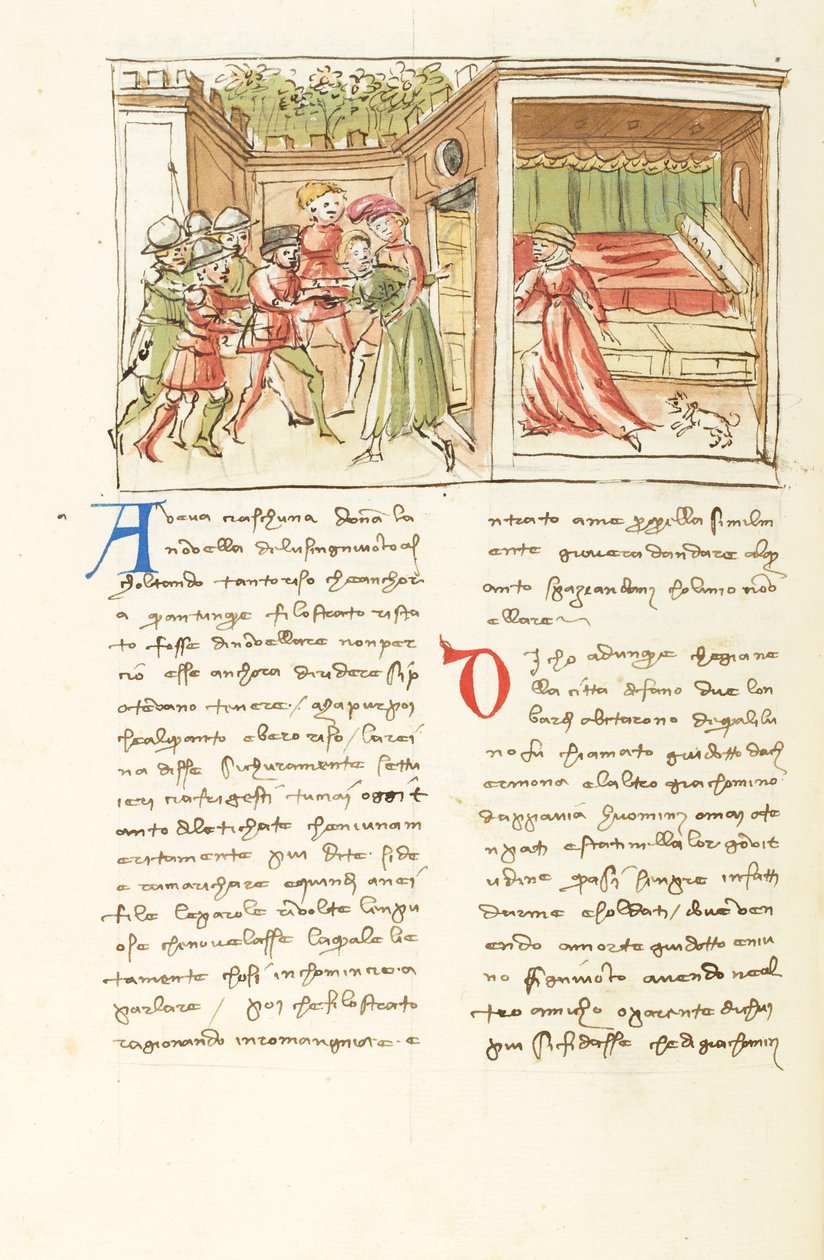 Aveva ciaschuna dona la
novella delusingniuolo as
choltando tanto riso che anchor
a quantunque filostrato rista
to fosse dinovellare non per
ciò esse anchora diridere si p
otevano tenere / Ma pur poi
che alquanto ebero riso / la rei
na disse Sichuramente settu
ieri ciafrigesti tu mai oggi t
anto diletichate che niuna m
eritamente piu dite si de
e ramarichare e quindi a nei
file le parole rivolte linpu
ose che novelasse la quale lie
tamente chosi inchomincio a
parlare / poi che filostrato
ragionando inromangnia e e
ntrato a me per quella similm
ente giovera dandare alqu
anto spaziandomi chol mio nov
ellare
Dicho adunque che gia ne
lla citta difano due lon
bardi abitarono de quali lu
no fu chiamato guidotto dach
ermona e laltro giachomino
da ppavia huomini omai ate
npati e stati nella lor giovit
udine quasi senpre in fatti
darme e soldati / dove ven
endo a morte guidotto e niu
no figniuolo avendo ne al
tro amicho o parente di chui
piu si fidasse che di giachomin